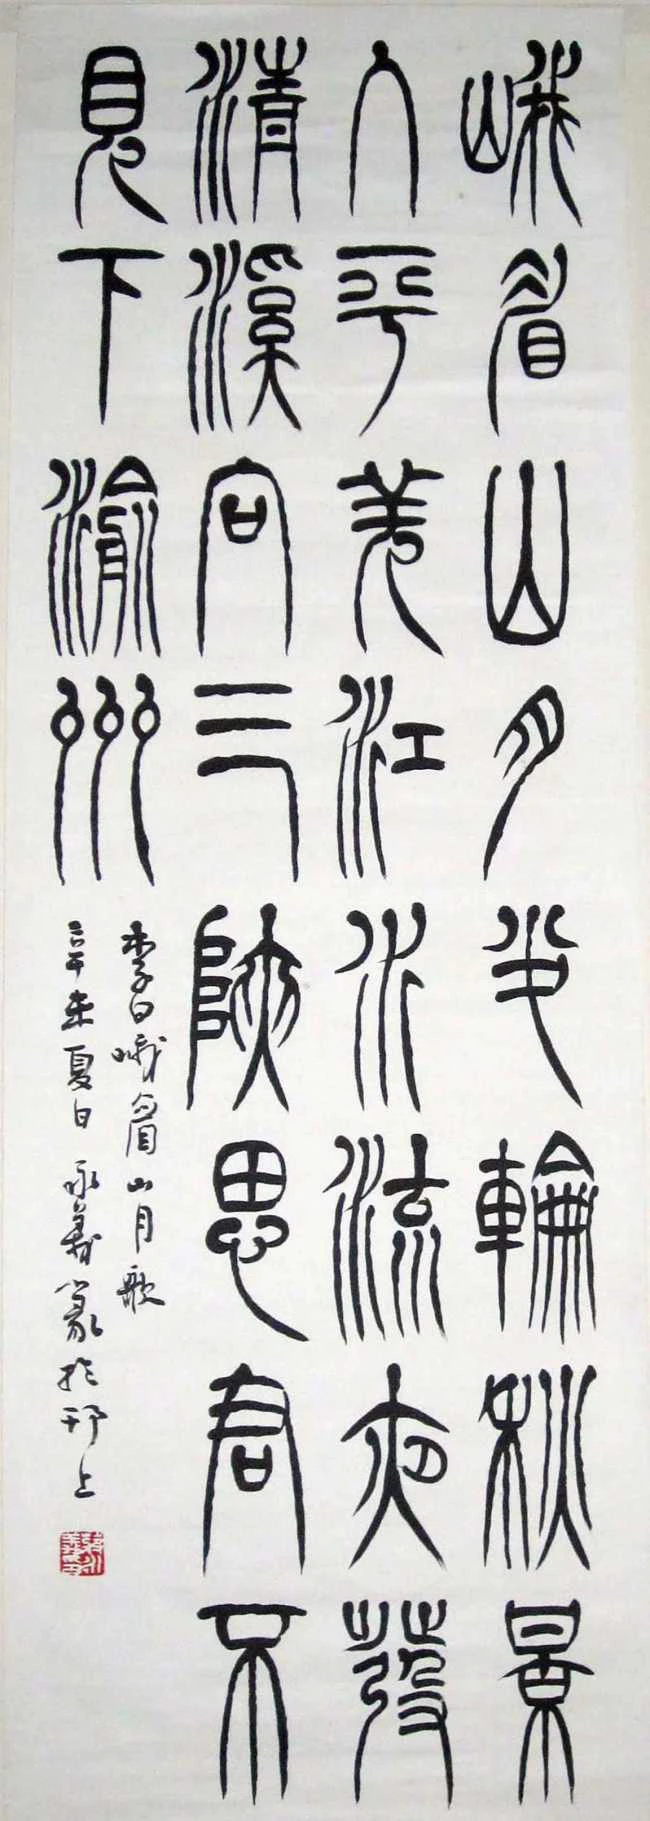 峨眉山月半輪秋景
入平羌江水流夜發
清溪向三陝思君不
見下渝州
李白峨眉山月歌
辛未夏日永義篆於邗上